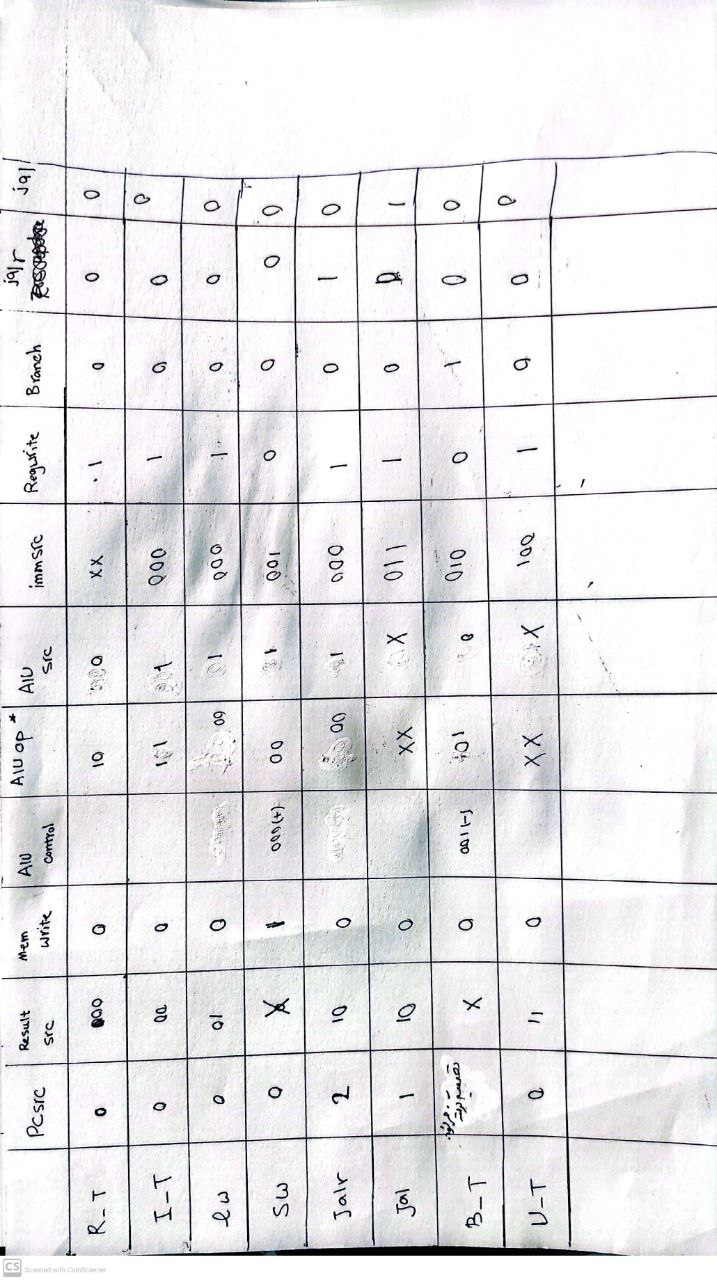 PCsrc Result src Mem write AlU control AlU op * AlU src immsrc Regwrite Branch jalr jal
R_T 0 00 0 10 0 XX 1 0 0 0
I_T 0 00 0 11 1 000 1 0 0 0
lw 0 01 0 00 1 000 1 0 0 0
SW 0 X 1 000(+) 00 1 001 0 0 0 0
Jalr 2 10 0 00 1 000 1 0 1 0
Jal 1 10 0 XX X 011 1 0 0 1
B_T X 0 001(-) 01 0 010 0 1 0 0
U_T 0 11 0 XX X 100 1 0 0 0
CS Scanned with CamScanner